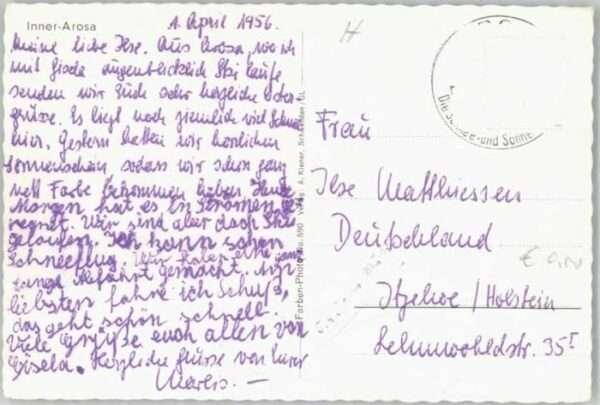 Inner-Arosa
1. April 1956.
Meine liebe Ilse. Aus Arosa, wo ich
mit Gisela augenblicklich Ski laufe
senden wir Euch sehr herzliche Oster-
grüße. Es liegt noch ziemlich viel Schnee
hier. Gestern hatten wir herrlichen
Sonnenschein, sodass wir schon ganz
nett Farbe bekommen haben. Heute
Morgen hat es in Strömen ge
regnet. Wir sind aber doch Ski
gelaufen. Ich kann schon
Schneepflug. Wir haben eine ganz
lange Abfahrt gemacht. Am
liebsten fahre ich Schuß,
das geht schön schnell.
Viele Grüße euch allen von
Gisela. Herzliche Grüsse von Eurer
Marlis. —
Farben-Photo No. 890 Verlag A. Klener,
Die Schnee- und Sonne
Frau
Ilse Matthiessen
Deutschland
Itzehoe / Holstein
Lehmwohldstr. 35 I